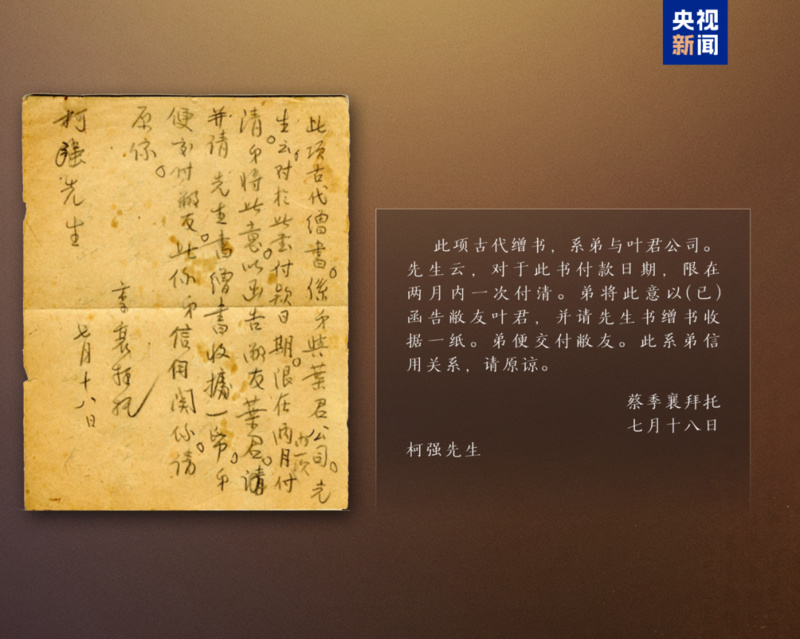 央视
新闻
此项古代缯書。係弟與葉君公司。先
生云对於此書付款日期。限在两月内一次付
清。弟将此意以函告敝友葉君。
并請 先生書缯書收據一帋。弟
便交付敝友。此係弟信用関係請
原諒。
季襄拜托
七月十八日
柯强先生
此项古代缯书，系弟与叶君公司。
先生云，对于此书付款日期，限在
两月内一次付清。弟将此意以(已)
函告敝友叶君，并请先生书缯书收
据一纸。弟便交付敝友。此系弟信
用关系，请原谅。
蔡季襄拜托
七月十八日
柯强先生